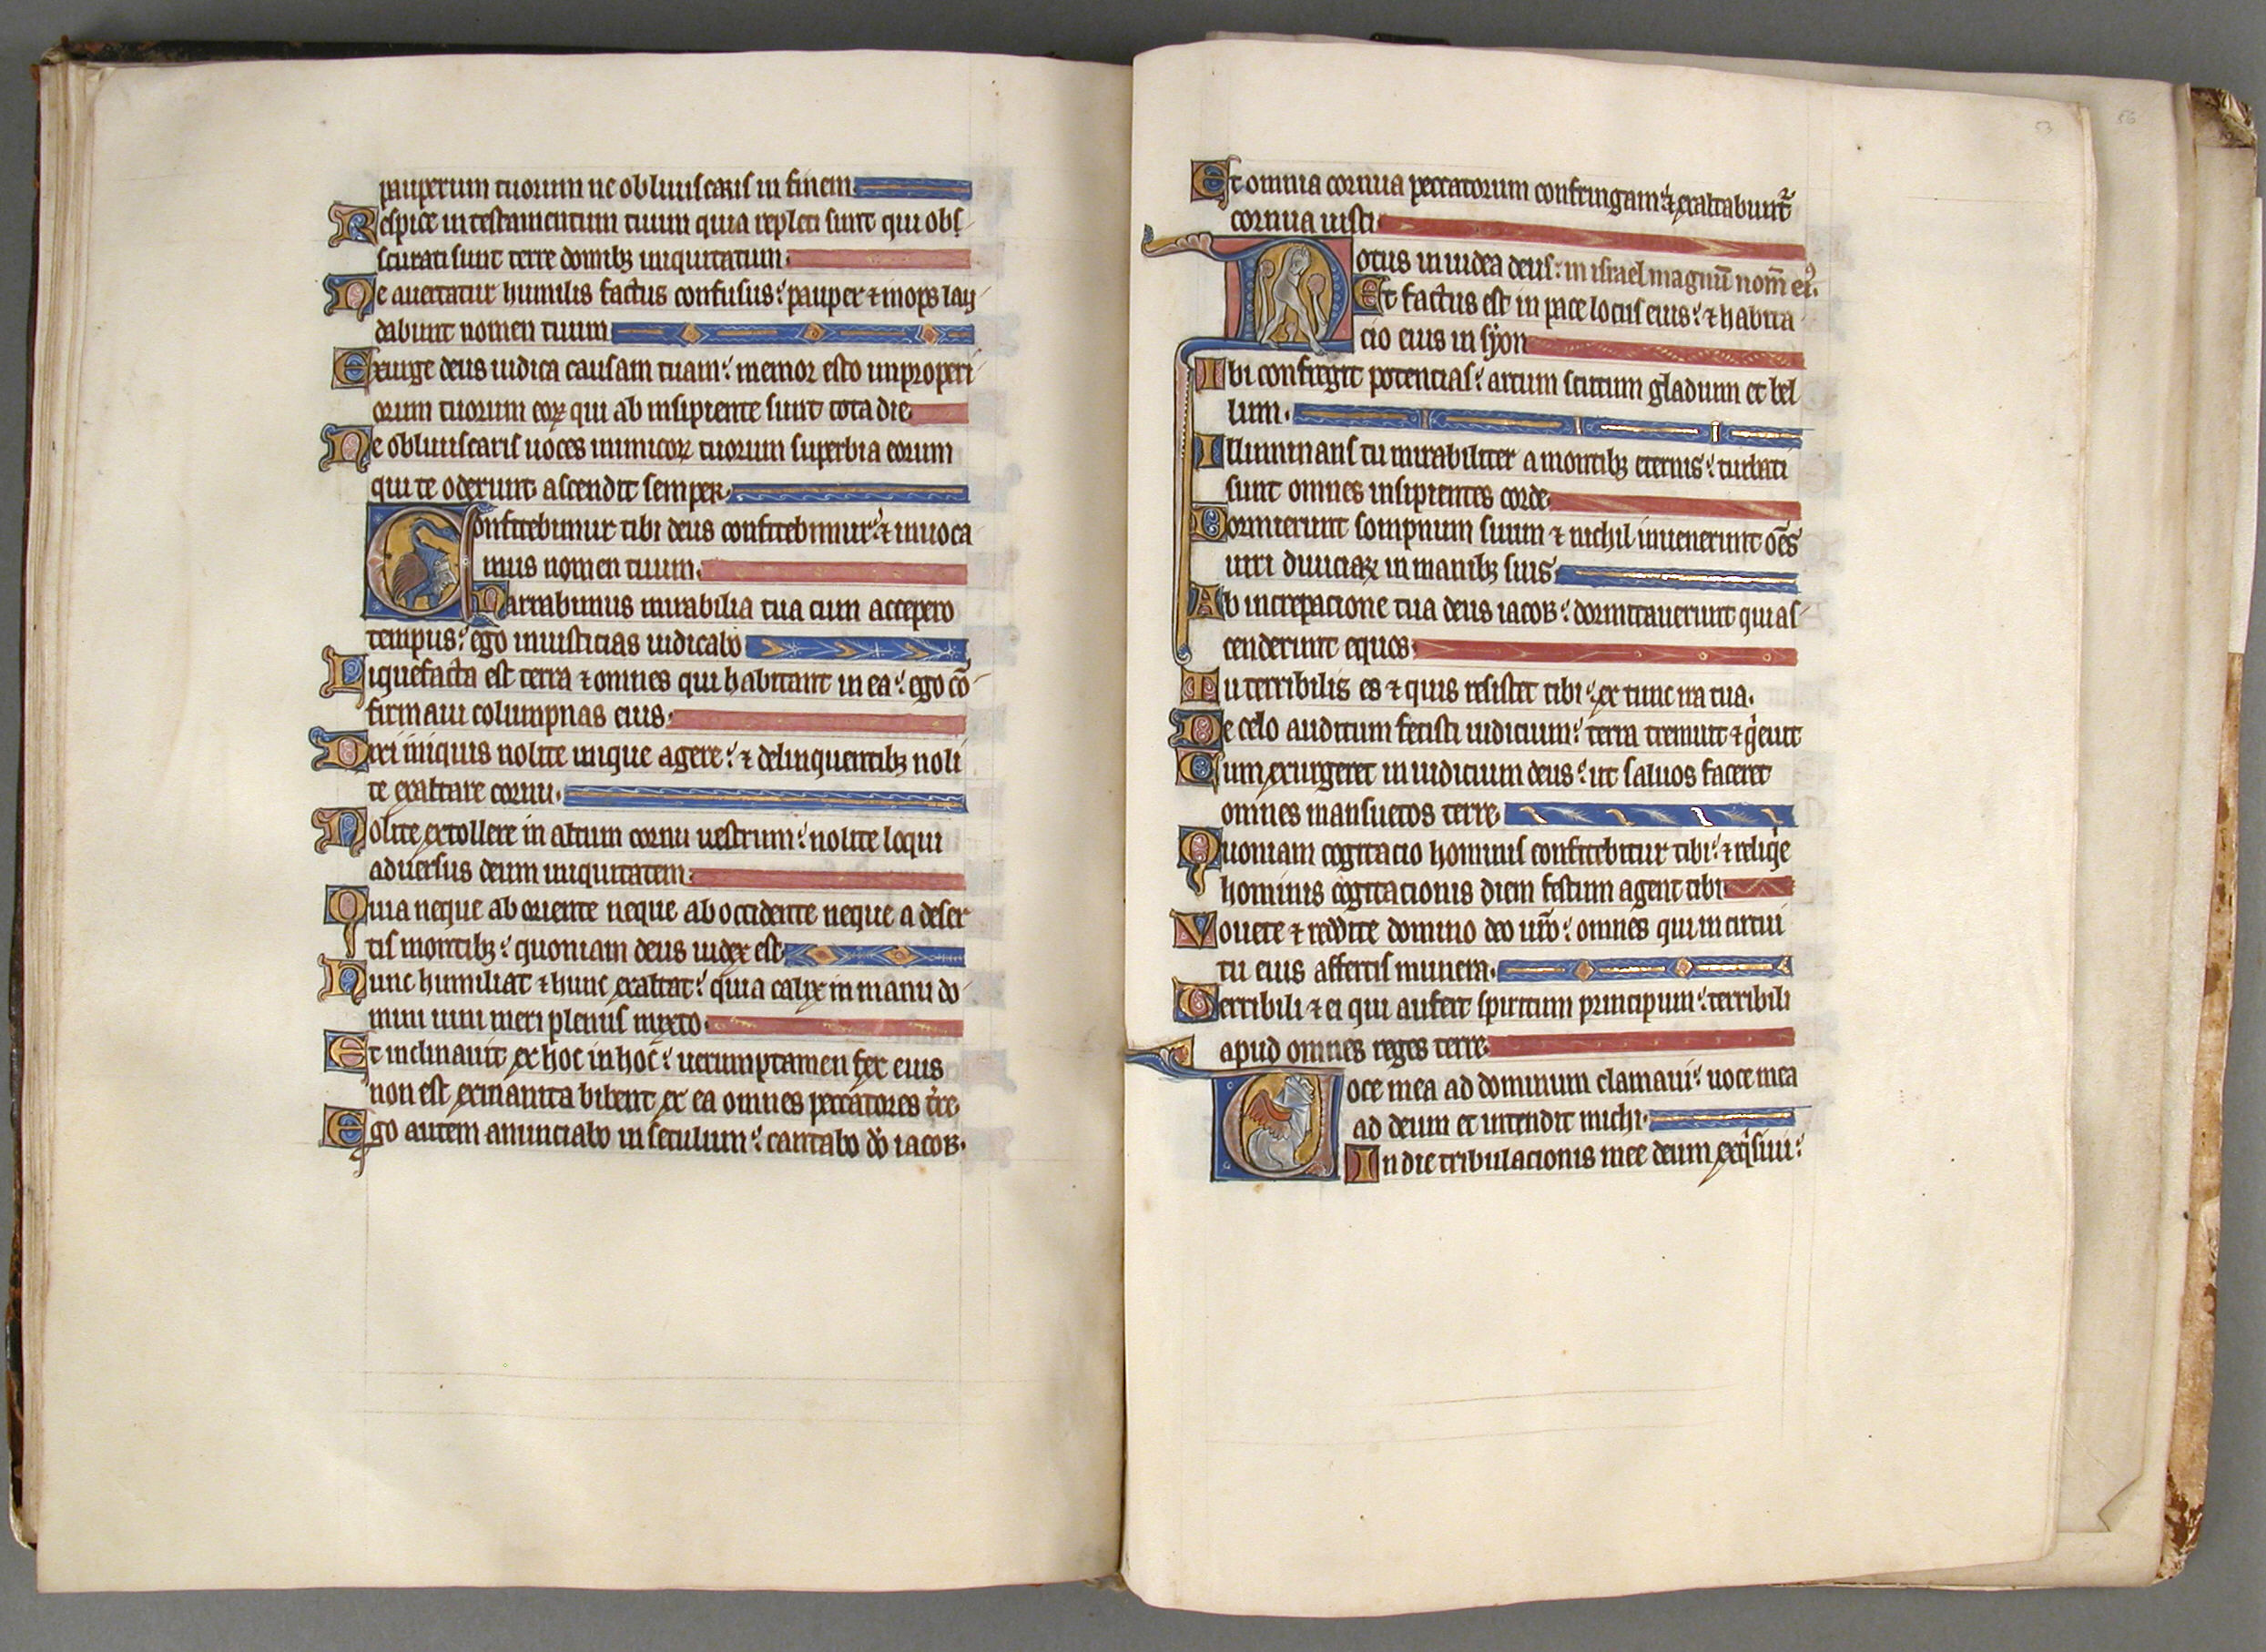 pauperum tuorum ne obliuiscaris in finem
Respice in testamentum tuum quia repleti sunt qui obs
scurati sunt terre domibꝫ iniquitatum.
Ne auertatur humilis factus confusus: pauper ⁊ inops lau
dabunt nomen tuum
Exurge deus iudica causam tuam: memor esto improperi
orum tuorum eoꝝ qui ab insipiente sunt tota die
Ne obliuiscaris uoces inimicoꝝ tuorum superbia eorum
qui te oderunt ascendit semper.
Confitebimur tibi deus confitebimur: ⁊ inuoca
mus nomen tuum.
Narrabimus mirabilia tua cum accepero
tempus: ego iniusticias iudicabo
Liquefacta est terra ⁊ omnes qui habitant in ea: ego cō
firmaui columpnas eius.
Dixi iniquis nolite inique agere: ⁊ delinquentibꝫ noli
te exaltare cornu.
Nolite extollere in altum cornu uestrum: nolite loqui
aduersus deum iniquitatem.
Quia neque ab oriente neque ab occidente neque a deser
tis montibꝫ: quoniam deus iudex est
Hunc humiliat ⁊ hunc exaltat: quia calix in manu do
mini uini meri plenus mixto.
Et inclinauit ex hoc in hoc: uerumptamen fex eius
non est exinanita bibent ex ea omnes peccatores t̄re
Ego autem annunciabo in seculum: cantabo do iacob.
53
56
Et omnia cornua peccatorum confringam: ⁊ exaltabunt᷑
cornua iusti
Notus in iudea deus: in israel magnū nom̄ eiꝰ.
Et factus est in pace locus eius: ⁊ habita
cio eius in syon
Ibi confregit potencias: arcum scutum gladium et bel
lum.
Illuminans tu mirabiliter a montibꝫ eternis: turbati
sunt omnes insipientes corde
Dormierunt sompnum suum ⁊ nichil inuenerunt om̄s
uiri diuiciaꝝ in manibꝫ suis
Ab increpacione tua deus iacob: dormitauerunt qui as
cenderunt equos
Tu terribilis es ⁊ quis resistet tibi: ex tunc ira tua.
De celo auditum fecisti iudicium: terra tremuit ⁊ qͥeuit
Cum exurgeret in iudicium deus: ut saluos faceret
omnes mansuetos terre.
Quoniam cogitacio hominis confitebitur tibi: ⁊ reliqͥe
hominis cogitacionis diem festum agent tibi
Vouete ⁊ reddite domino deo ur̄o: omnes qui in circui
tu eius affertis munera.
Terribili ⁊ ei qui aufert spiritum principum: terribili
apud omnes reges terre
Voce mea ad dominum clamaui: uoce mea
ad deum et intendit michi.
In die tribulacionis mee deum exqͥsiui: